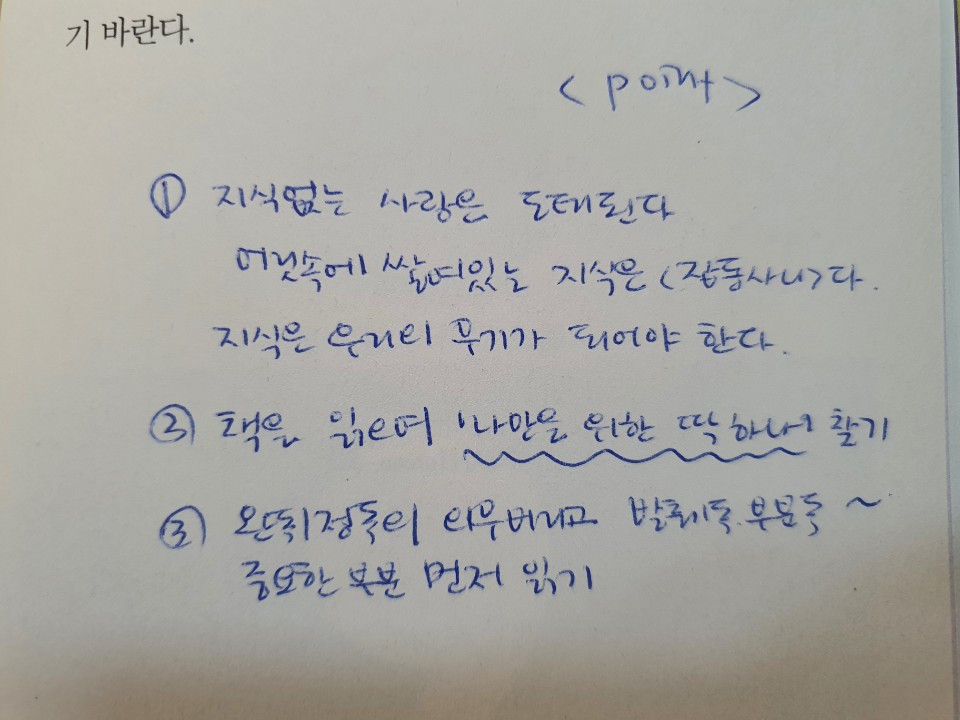 기 바란다.
< point >
① 지식없는 사랑은 도태된다
머릿속에 쌓여있는 지식은 <잡동사니>다.
지식은 우리의 무기가 되어야 한다.
② 책은 읽으며 '나만을 위한 딱 하나' 찾기
③ 완독 정독의 의무버리고 발췌독.부분독 ~
중요한 부분 먼저 읽기